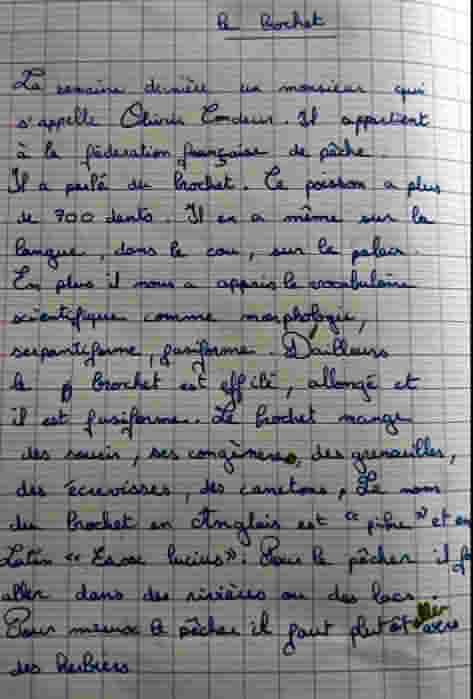 le brochet
La semaine dernière un monsieur qui
s'appelle Olivier Cordeur. Il appartient
à la féderation française de pêche.
Il a parlé du brochet. Ce poisson a plus
de 700 dents. Il en a même sur la
langue, dans le cou, sur le palais.
En plus il nous a appris le vocabulaire
scientifique comme morphologie,
serpantiforme, fusiforme. D'ailleurs
le brochet est effilé, allongé et
il est fusiforme. Le brochet mange
des soucis, ses congénères, des grenouilles,
des écrevisses, des canetons, Le nom
du brochet en Anglais est "pike" et en
Latin « Esox lucius ». Pour le pêcher il
aller dans des rivières ou des lacs.
Pour mieux le pêcher il faut plutôt aller vers
des herbiers